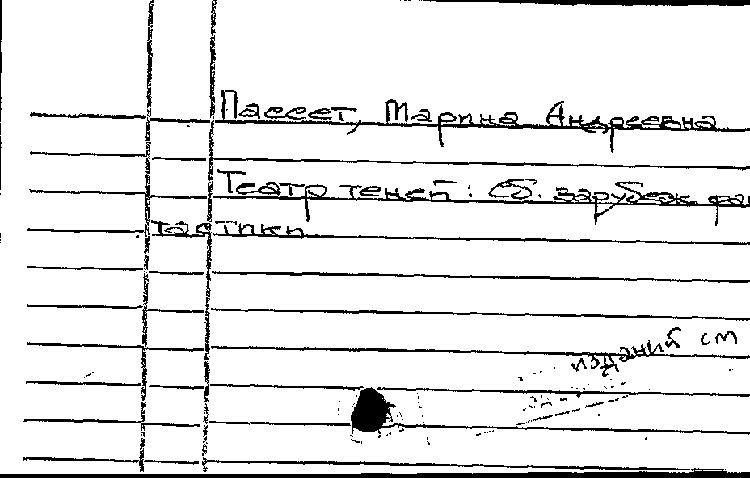 Пассет, Марина Андреевна
Театр теней : Сб. зарубеж. фан
тастики
изданий см